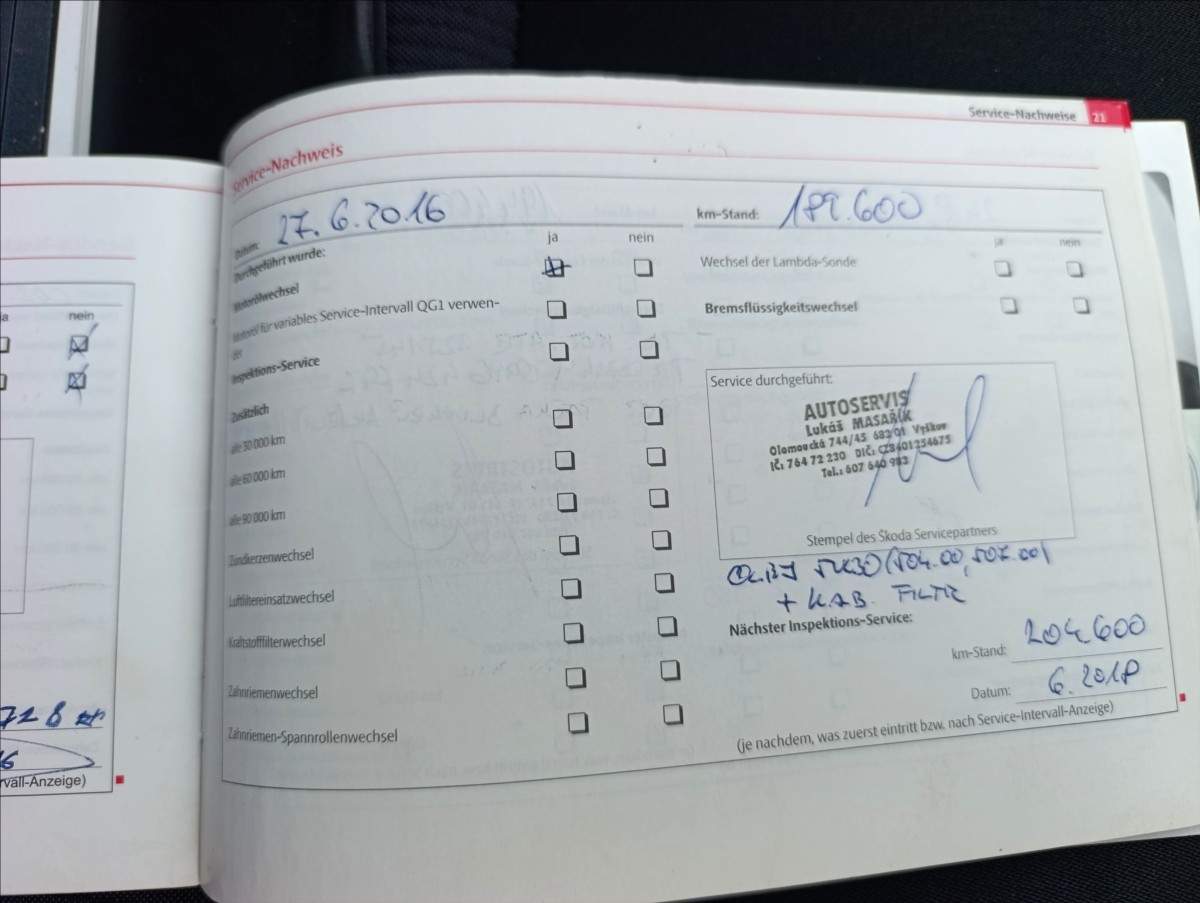 Service-Nachweise 21
Service-Nachweis
Datum: 27.6.2016
km-Stand: 189.600
Durchgeführt wurde:
ja nein
Motorölwechsel
Motoröl für variables Service-Intervall QG1 verwen-
det
Inspektions-Service
Zusätzlich
alle 30 000 km
alle 60 000 km
alle 90 000 km
Zündkerzenwechsel
Luftfiltereinsatzwechsel
Kraftstofffilterwechsel
Zahnriemenwechsel
Zahnriemen-Spannrollenwechsel
ja nein
Wechsel der Lambda-Sonde
Bremsflüssigkeitswechsel
Service durchgeführt:
AUTOSERVIS
Lukáš MASAŘÍK
Olomoucká 744/45 682 01 Vyškov
IČ: 764 72 230 DIČ: CZ8401254675
Tel.: 607 640 983
Stempel des Škoda Servicepartners
OLEJ 5W30 (504.00, 507.00)
+ KAB. FILTR
Nächster Inspektions-Service:
km-Stand: 204.600
Datum: 6.2018
(je nachdem, was zuerst eintritt bzw. nach Service-Intervall-Anzeige)
a nein
728
6
rvall-Anzeige)